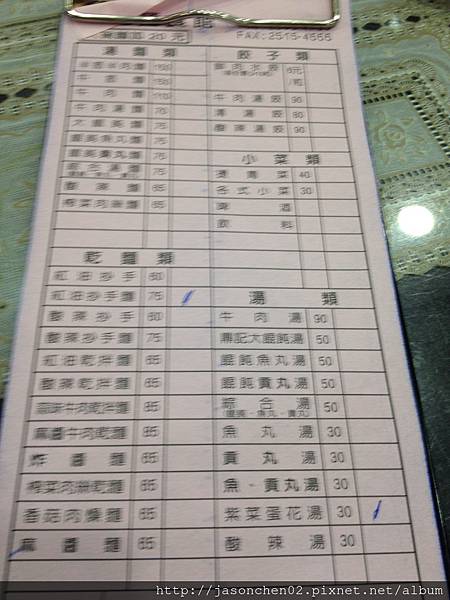 FAX:2515-4555
湯麵類
牛肉麵 110
牛肉湯麵 75
大餛飩麵 75
餛飩魚丸麵 75
餛飩貢丸麵 75
酸辣麵 65
榨菜肉絲麵 65
乾麵類
紅油抄手 60
紅油抄手麵 75
酸辣抄手 60
酸辣抄手麵 75
紅油乾拌麵 65
酸辣乾拌麵 65
麻辣牛肉乾拌麵 85
麻醬牛肉乾麵 85
炸醬麵 65
榨菜肉絲乾麵 65
香菇肉燥麵 65
麻醬麵 65
餃子類
鮮肉水餃 6元/粒
牛肉湯餃 90
清湯餃 80
酸辣湯餃 90
小菜類
燙青菜 40
各式小菜 30
啤酒
飲料
湯類
牛肉湯 90
鼎記大餛飩湯 50
餛飩魚丸湯 50
餛飩貢丸湯 50
綜合湯 50
(餛飩、魚丸、貢丸)
魚丸湯 30
貢丸湯 30
魚、貢丸湯 30
紫菜蛋花湯 30
酸辣湯 30
http://jasonchen02.pixnet.net/album